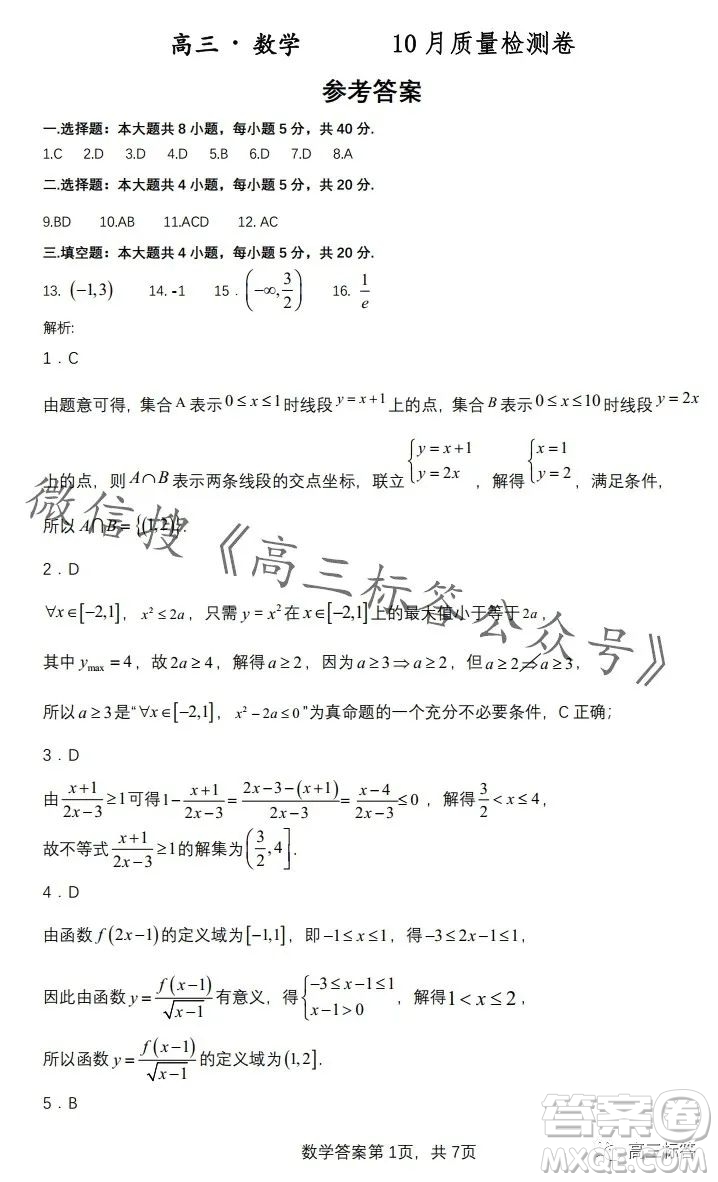 高三·数学 10月质量检测卷
参考答案
一.选择题：本大题共 8 小题，每小题 5 分，共 40 分.
1.C 2.D 3.D 4.D 5.B 6.D 7.D 8.A
二.选择题：本大题共 4 小题，每小题 5 分，共 20 分.
9.BD 10.AB 11.ACD 12. AC
三.填空题：本大题共 4 小题，每小题 5 分，共 20 分.
13. (−1,3) 14. -1 15．(−∞,3/2) 16. 1/e
解析:
1．C
由题意可得，集合 A 表示 0≤x≤1 时线段 y=x+1 上的点，集合 B 表示 0≤x≤10 时线段 y=2x
上的点，则 A∩B 表示两条线段的交点坐标，联立 {y=x+1 y=2x ，解得 {x=1 y=2 ，满足条件，
所以 A∩B={(1,2)}.
2．D
∀x∈[−2,1]，x²≤2a，只需 y=x² 在 x∈[−2,1] 上的最大值小于等于 2a，
其中 ymax=4，故 2a≥4，解得 a≥2，因为 a≥3⇒a≥2，但 a≥2⇏a≥3，
所以 a≥3 是“∀x∈[−2,1]，x²−2a≤0”为真命题的一个充分不必要条件，C 正确；
3．D
由 (x+1)/(2x−3)≥1 可得 1−(x+1)/(2x−3)=(2x−3−(x+1))/(2x−3)=(x−4)/(2x−3)≤0 ，解得 3/2<x≤4，
故不等式 (x+1)/(2x−3)≥1 的解集为 (3/2,4].
4．D
由函数 f(2x−1) 的定义域为 [−1,1]，即 −1≤x≤1，得 −3≤2x−1≤1，
因此由函数 y=f(x−1)/√(x−1) 有意义，得 {−3≤x−1≤1 x−1>0 ，解得 1<x≤2，
所以函数 y=f(x−1)/√(x−1) 的定义域为 (1,2].
5．B
数学答案第 1页，共 7页
微信搜《高三标答公众号》
高三标答
答案圈
MXQE.COM